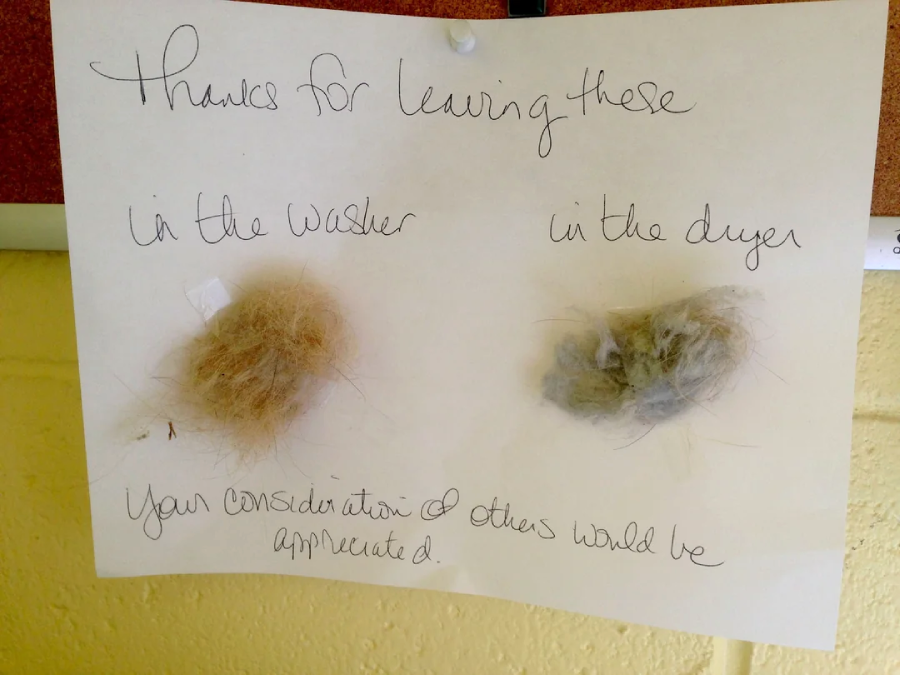 Thanks for leaving these
in the washer
in the dryer
Your consideration of others would be
appreciated.